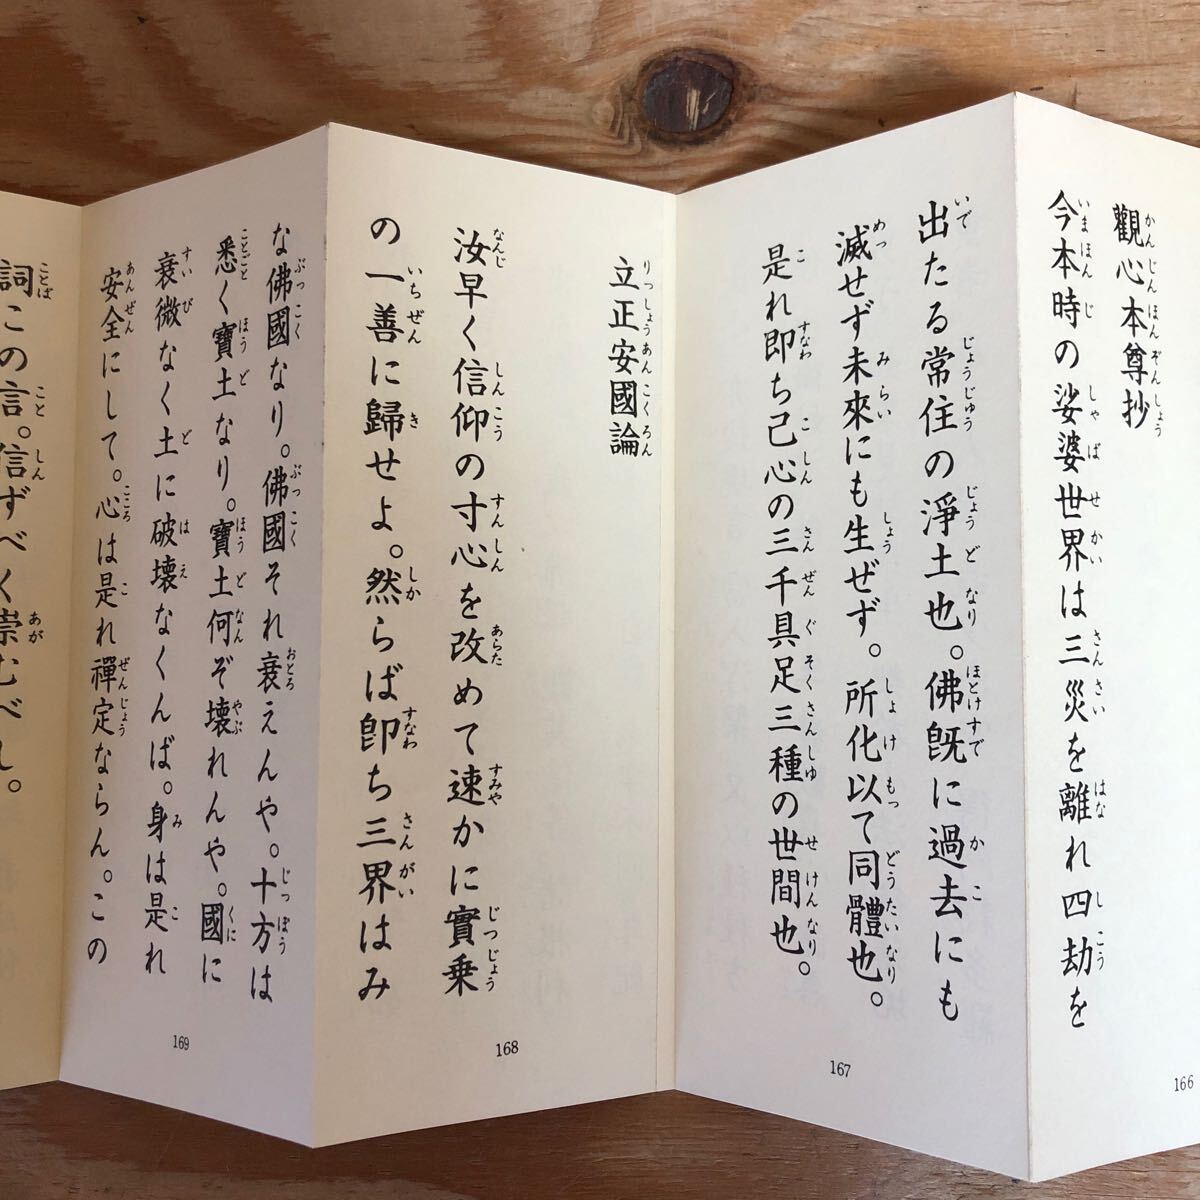 觀心本尊抄
今本時の娑婆世界は三災を離れ四劫を
166
出たる常住の淨土也。佛既に過去にも
滅せず未來にも生ぜず。所化以て同體也。
是れ即ち己心の三千具足三種の世間也。
167
立正安國論
汝早く信仰の寸心を改めて速かに實乗
の一善に歸せよ。然らば即ち三界はみ
168
な佛國なり。佛國それ衰えんや。十方は
悉く寶土なり。寶土何ぞ壊れんや。國に
衰微なく土に破壊なくんば。身は是れ
安全にして。心は是れ禪定ならん。この
169
詞この言。信ずべく崇むべし。